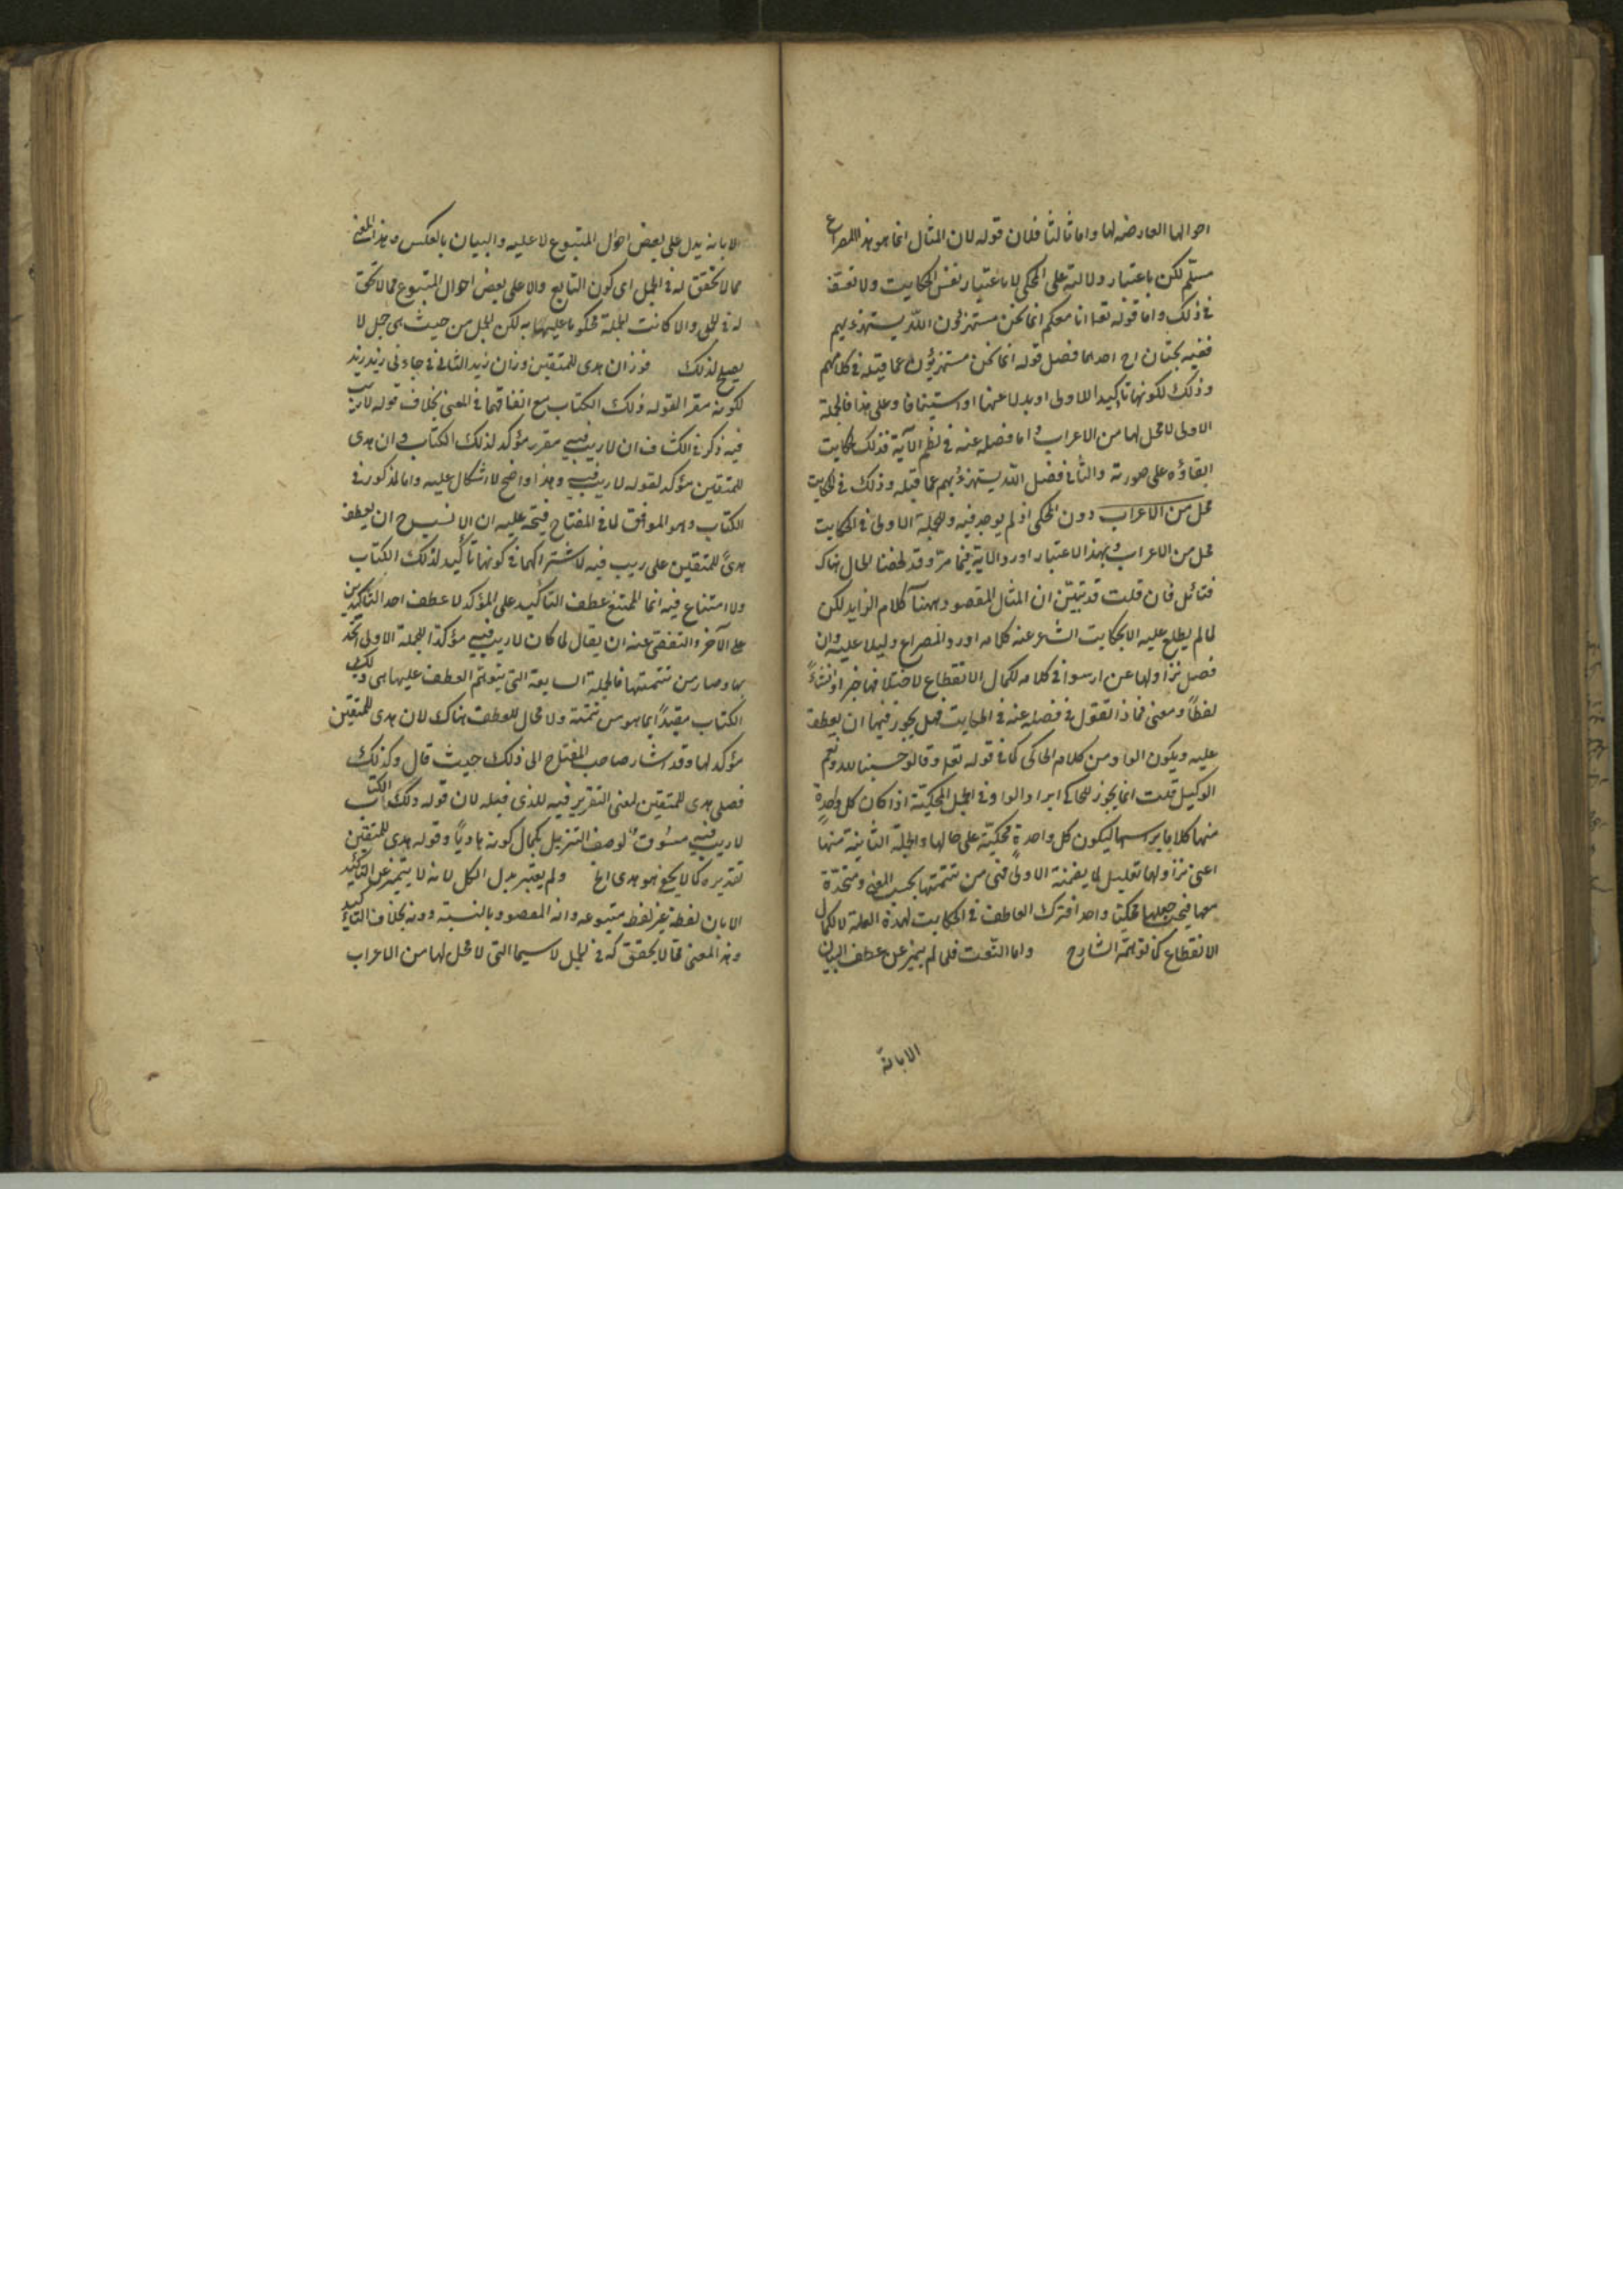 احوالها العارضة لها واما ثالثا فلان قوله لان المثال انما هو هذا المصراع
مسلم لكن باعتبار دلالته على المحكى لا باعتبار نفس الحكاية ولا تعسف
فى ذلك واما قوله تعا انا معكم انما نحن مستهزؤن الله يستهزء بهم
ففيه بحثان احدهما فصل قوله انما نحن مستهزؤن عما قبله فى كلامهم
وذلك لكونها تاكيد الاولى او بدلا عنها او استينافا وعلى هذا فالجملة
الاولى لا محل لها من الاعراب واما فصله عنه فى نظم الآية فذلك لحكايت
ابقاؤه على صورته والثانى فصل الله يستهزئ بهم عما قبله وذلك فى الحكايت
محل من الاعراب دون المحكى اذ لم يوجد فيه وللجملة الاولى فى الحكايت
محل من الاعراب وبهذا الاعتبار اورد الآية فيما مر وقد لخصنا الحال هناك
فتأمل فان قلت قد تبين ان المثال المقصود ههنا كلام الرايد لكن
لما لم يطلع عليه الا بحكايت الشاعر عنه كلامه اورد المصراع دليلا عليه وان
فصل نزاولها عن ارسوا فى كلامه لكمال الانقطاع لاختلافهما خبرا وانشاءً
لفظاً ومعنى فماذا تقول فى فصله عنه فى الحكايت فهل يجوز فيها ان يعطف
عليه ويكون الواو من كلام الحاكى كما فى قوله تعا وقالوا حسبنا الله ونعم
الوكيل قلت انما يجوز للحاكى ايراد الواو فى الجمل المحكيّة اذا كان كل واحدةٍ
منها كلاما براسها ليكون كل واحدةٍ محكيّة على حالها والجملة الثانية منها
اعنى نزاولها تعليل لما يضمنه الاولى فهى من تتمتها بحسب المعنى ومتحدة
معها فيجب جعلها محكيّا واحدا فترك العاطف فى الحكايت لهذه العلة لا لكمال
الانقطاع كما توهمه الشارح واما النعت فلما لم يتميز عن عطف البيان
الابانة
الا بانه يدل على بعض احوال المتبوع لا عليه والبيان بالعكس وهذا المعنى
مما لا تحقق له فى الجمل اى كون التابع دالا على بعض احوال المتبوع مما لا تحقق
له فى الجمل والا كانت الجملة محكوما عليها به لكن الجمل من حيث هى جمل لا
يصلح لذلك فوزان هدى للمتقين وزان زيد الثانى فى جاءنى زيد زيد
لكونه مقررا لقوله ذلك الكتاب مع اتفاقهما فى المعنى بخلاف قوله لا ريب
فيه ذكر فى الكشاف ان لا ريب فيه مقرر مؤكد لذلك الكتاب وان هدى
للمتقين مؤكد لقوله لا ريب فيه وهذا واضح لا اشكال عليه واما المذكور فى
الكتاب وهو الموافق لما فى المفتاح فيتجه عليه ان الانسب ح ان يعطف
هدىً للمتقين على ريب فيه لاشتراكهما فى كونهما تأكيد لذلك الكتاب
ولا امتناع فيه انما الممتنع عطف التأكيد على المؤكد لا عطف احد التأكيدين
على الآخر والتفصى عنه ان يقال لما كان لا ريب فيه مؤكدا للجملة الاولى اتحد
بها وصار من تتمتها فالجملة السابقة التى يتوهم العطف عليها هى ذلك
الكتاب مقيّداً بما هو من تتمته ولا مجال للعطف هناك لان هدى للمتقين
مؤكد لها وقد اشار صاحب المفتاح الى ذلك حيث قال وكذلك
فصل هدى للمتقين لمعنى التقرير فيه للذى قبله لان قوله ذلك الكتاب
لا ريب فيه مسوق لوصف التنزيل بكمال كونه هادياً وقوله هدى للمتقين
تقديره كما لا يخفى هو هدى الخ ولم يعتبر بدل الكل لانه لا يتميز عن التأكيد
الا بان لفظه غير لفظ متبوعه وانه المقصود بالنسبة دونه بخلاف التأكيد
وهذا المعنى مما لا تحقق له فى الجمل لا سيما التى لا محل لها من الاعراب